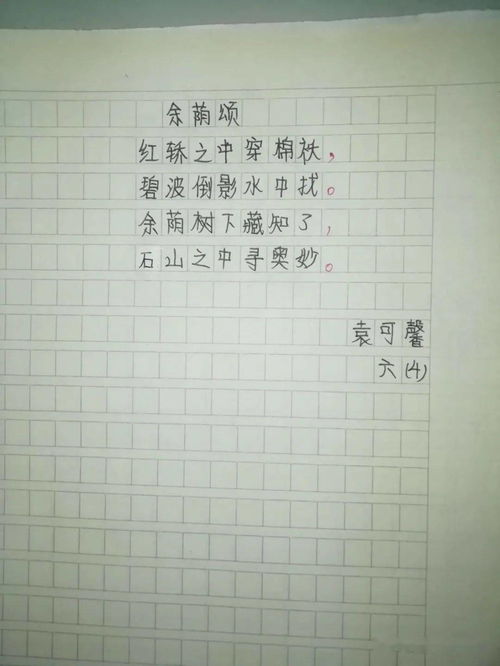 余荫颂
红轿之中穿棉袄，
碧波倒影水中找。
余荫树下藏知了，
石山之中寻奥妙。
袁可馨
六(4)